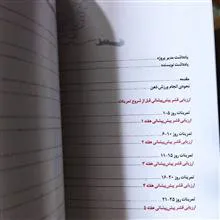 یادداشت مدیر پروژه
یادداشت نویسنده
مقدمه
نحوه‌ی انجام ورزش ذهن
ارزیابی قشر پیش‌پیشانی قبل از شروع تمرینات
تمرینات روز ۵-۱
ارزیابی قشر پیش‌پیشانی هفته ۱
تمرینات روز ۱۰-۶
ارزیابی قشر پیش‌پیشانی هفته ۲
تمرینات روز ۱۵-۱۱
ارزیابی قشر پیش‌پیشانی هفته ۳
تمرینات روز ۲۰-۱۶
ارزیابی قشر پیش‌پیشانی هفته ۴
تمرینات روز ۲۵-۲۱
ارزیابی قشر پیش‌پیشانی هفته ۵